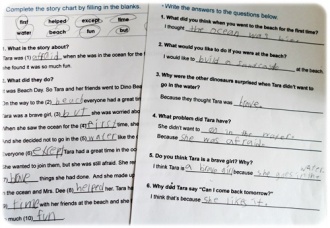 Complete the story chart by filling in the blanks.
first helped except time
water beach fun but
1. What is the story about?
Tara was (1) afraid when she was in the ocean for the f
she found it was so much fun.
2. What did they do?
It was Beach Day. So Tara and her friends went to Dino Bea
On the way to the (2) beach everyone had a great ti
Tara was a brave girl, (3) but she was worried abou
When she saw the ocean for the (4) first time, she
And she decided not to go in the (5) water like the
Everyone (6) except Tara had a great time in the oc
She wanted to join them, but she was still afraid. She
things she had done. And she made u
in the ocean and Mrs. Dee (8) helped her. Tara ha
time with her friends at the beach and she
much (10) fun
Write the answers to the questions below.
1. What did you think when you went to the beach for the first time?
I thought the ocean was
2. What would you like to do if you were at the beach?
I would like to build a at the beach.
3. Why were the other dinosaurs surprised when Tara didn't want to
go in the water?
Because they thought Tara was brave
4. What problem did Tara have?
She didn't want to go in the
Because she was afraid
5. Do you think Tara is a brave girl? Why?
I think Tara is a brave girl because she
6. Why did Tara say "Can I come back tomorrow?"
I think that's because she likes it.